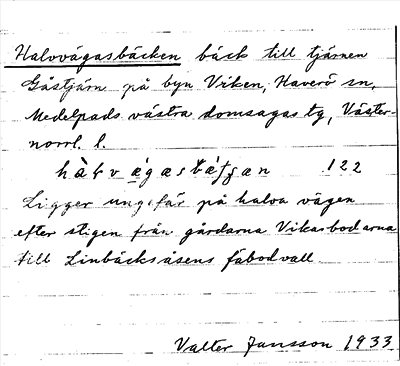 Halovägasbäcken bäck till tjärnen
Gåstjärn på byn Viken, Haverö sn,
Medelpads västra domsagas tg, Väster-
norrl. l.
122
Ligger ungefär på halva vägen
efter stigen från gårdarna Vikasbodarna
till Linbäcksåsens fäbodvall
Valter Jansson 1933